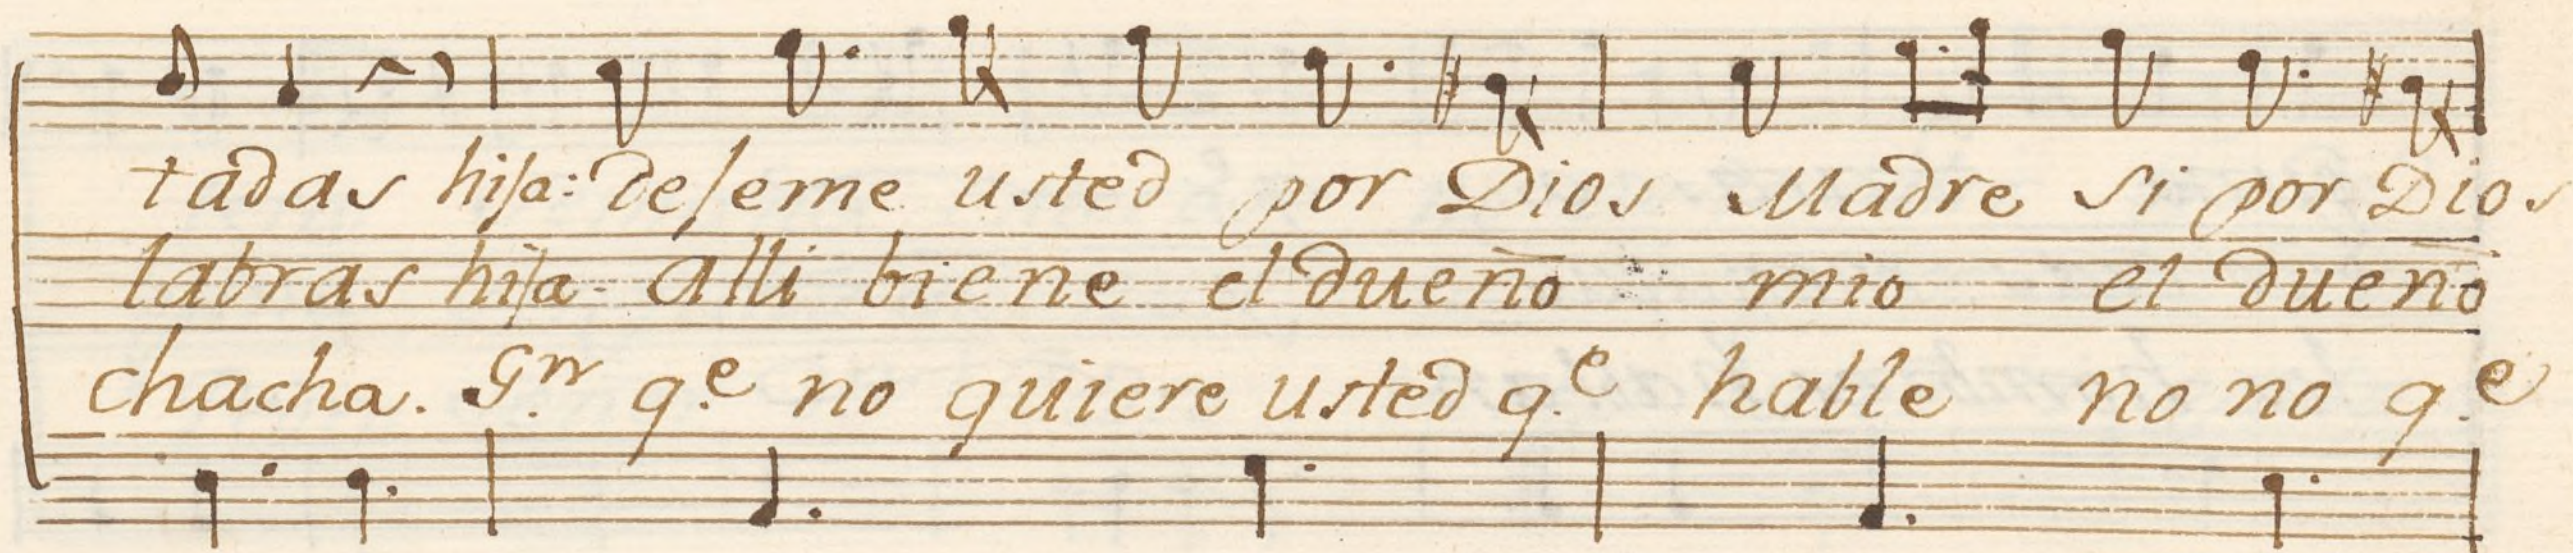 tadas hija: dejeme usted por Dios Madre si por Dios
labras hija. alli biene el dueño mio el dueño
chacha. Grr q.e no quiere usted q.e hable no no q.e